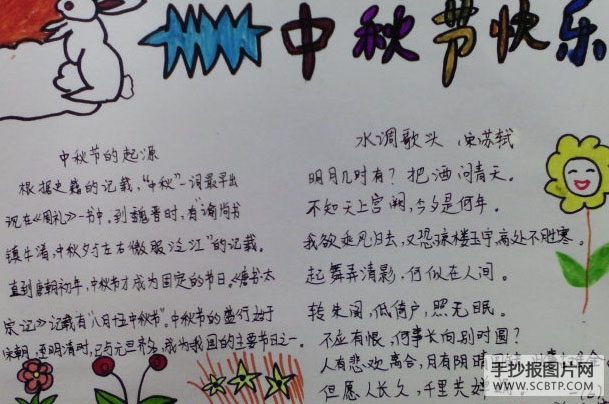 中秋节快乐
中秋节的起源
根据史籍的记载，“中秋”一词最早出
现在《周礼》一书中。到魏晋时，有“谕尚书
镇牛渚，中秋夕与左右微服泛江”的记载。
直到唐朝初年，中秋节才成为固定的节日。《唐书·太
宗记》记载有“八月十五中秋节”。中秋节的盛行始于
宋朝，至明清时，已与元旦齐名，成为我国的主要节日之一。
水调歌头 宋苏轼
明月几时有？把酒问青天。
不知天上宫阙，今夕是何年。
我欲乘风归去，又恐琼楼玉宇，高处不胜寒。
起舞弄清影，何似在人间。
转朱阁，低倚户，照无眠。
不应有恨，何事长向别时圆？
人有悲欢离合，月有阴晴
但愿人长久，千里共
手抄报图片网
WWW.SCBTP.COM